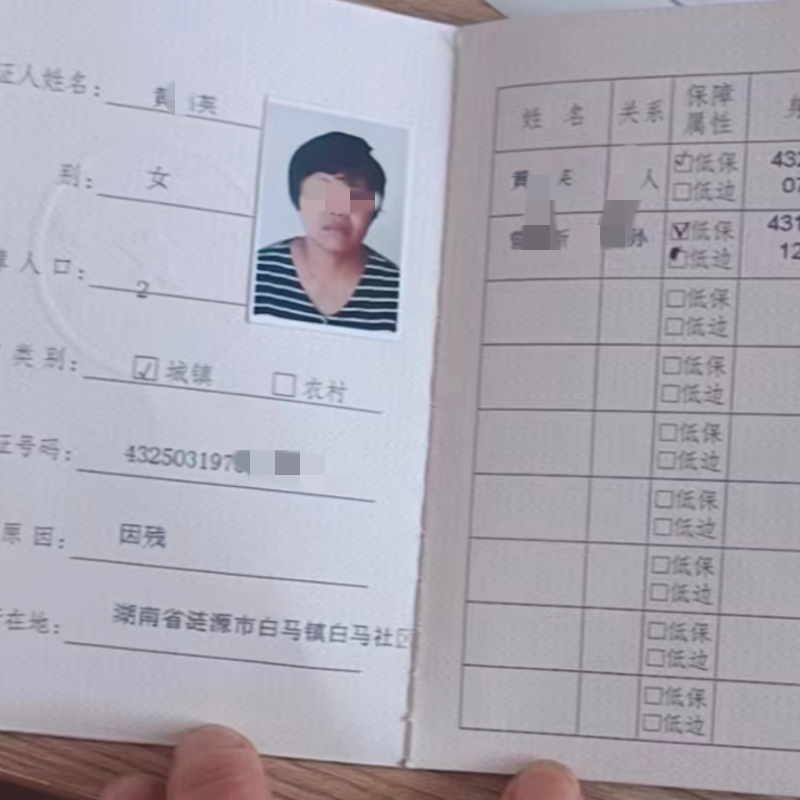 证人姓名： 黄 英
别： 女
障人口： 2
类别： ☑城镇 □农村
证号码： 432503197
原因： 因残
所在地： 湖南省涟源市白马镇白马社区
姓名 关系 保障属性
黄 英 人 ☑低保 □低边 432 07
曾 新 孙 ☑低保 低边 431 12
□低保
□低边
□低保
□低边
□低保
□低边
□低保
□低边
□低保
□低边
□低保
□低边
□低保
□低边